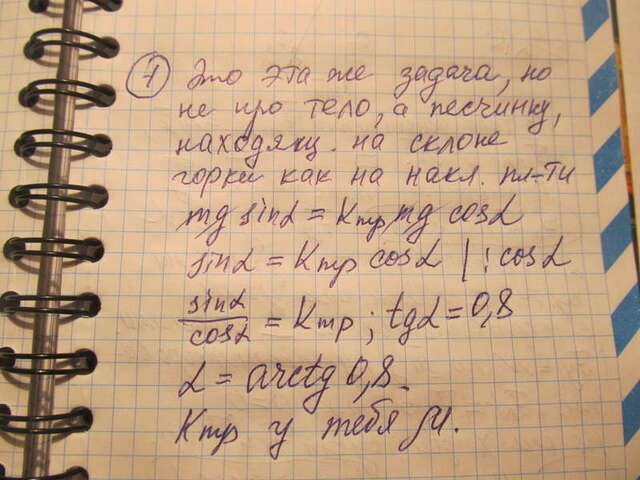 7 Это эта же задача, но
не про тело, а песчинку,
находящ. на склоне
горки как на накл. пл-ти
mg sinα = Kтр mg cosα
sinα = Kтр cosα | : cosα
sinα/cosα = Kтр ; tgα = 0,8
α = arctg 0,8.
Kтр у тебя μ.